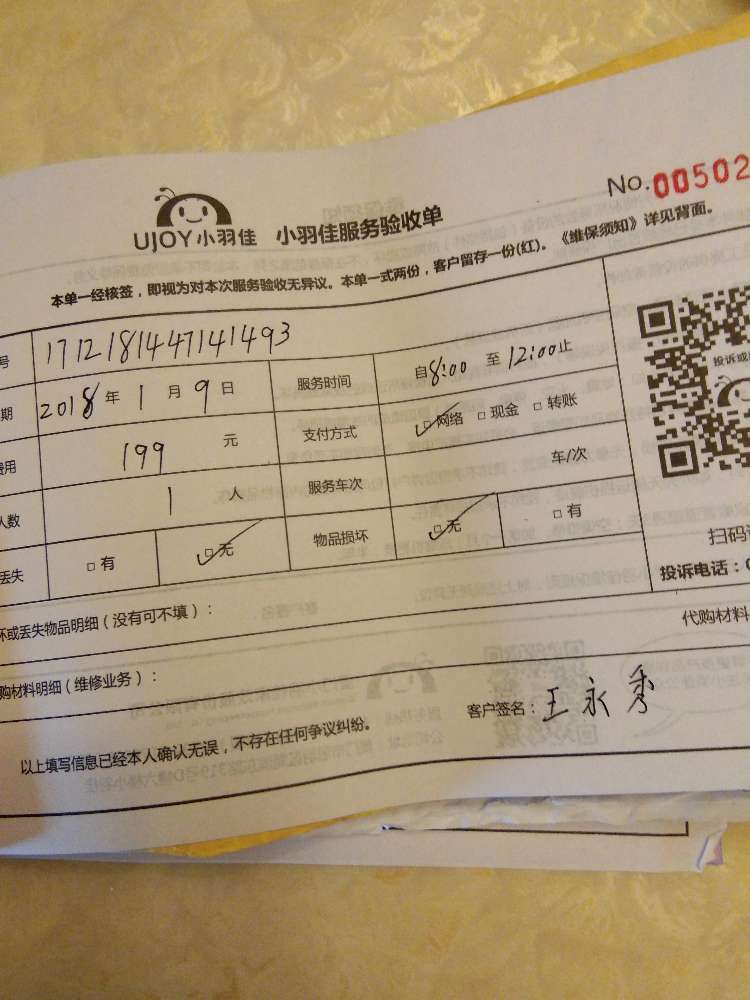 No.00502
UJOY小羽佳 小羽佳服务验收单
本单一经核签，即视为对本次服务验收无异议。本单一式两份，客户留存一份(红)。《维保须知》详见背面。
号 1712181447141493
期 2018年1月9日 服务时间 自8:00至12:00止
费用 199元 支付方式 ☑网络 □现金 □转账
人数 1人 服务车次 车/次
丢失 □有 ☑无 物品损坏 ☑无 □有
投诉或
扫码
投诉电话：0
坏或丢失物品明细（没有可不填）：
代购材料
购材料明细（维修业务）：
客户签名：王永秀
以上填写信息已经本人确认无误，不存在任何争议纠纷。